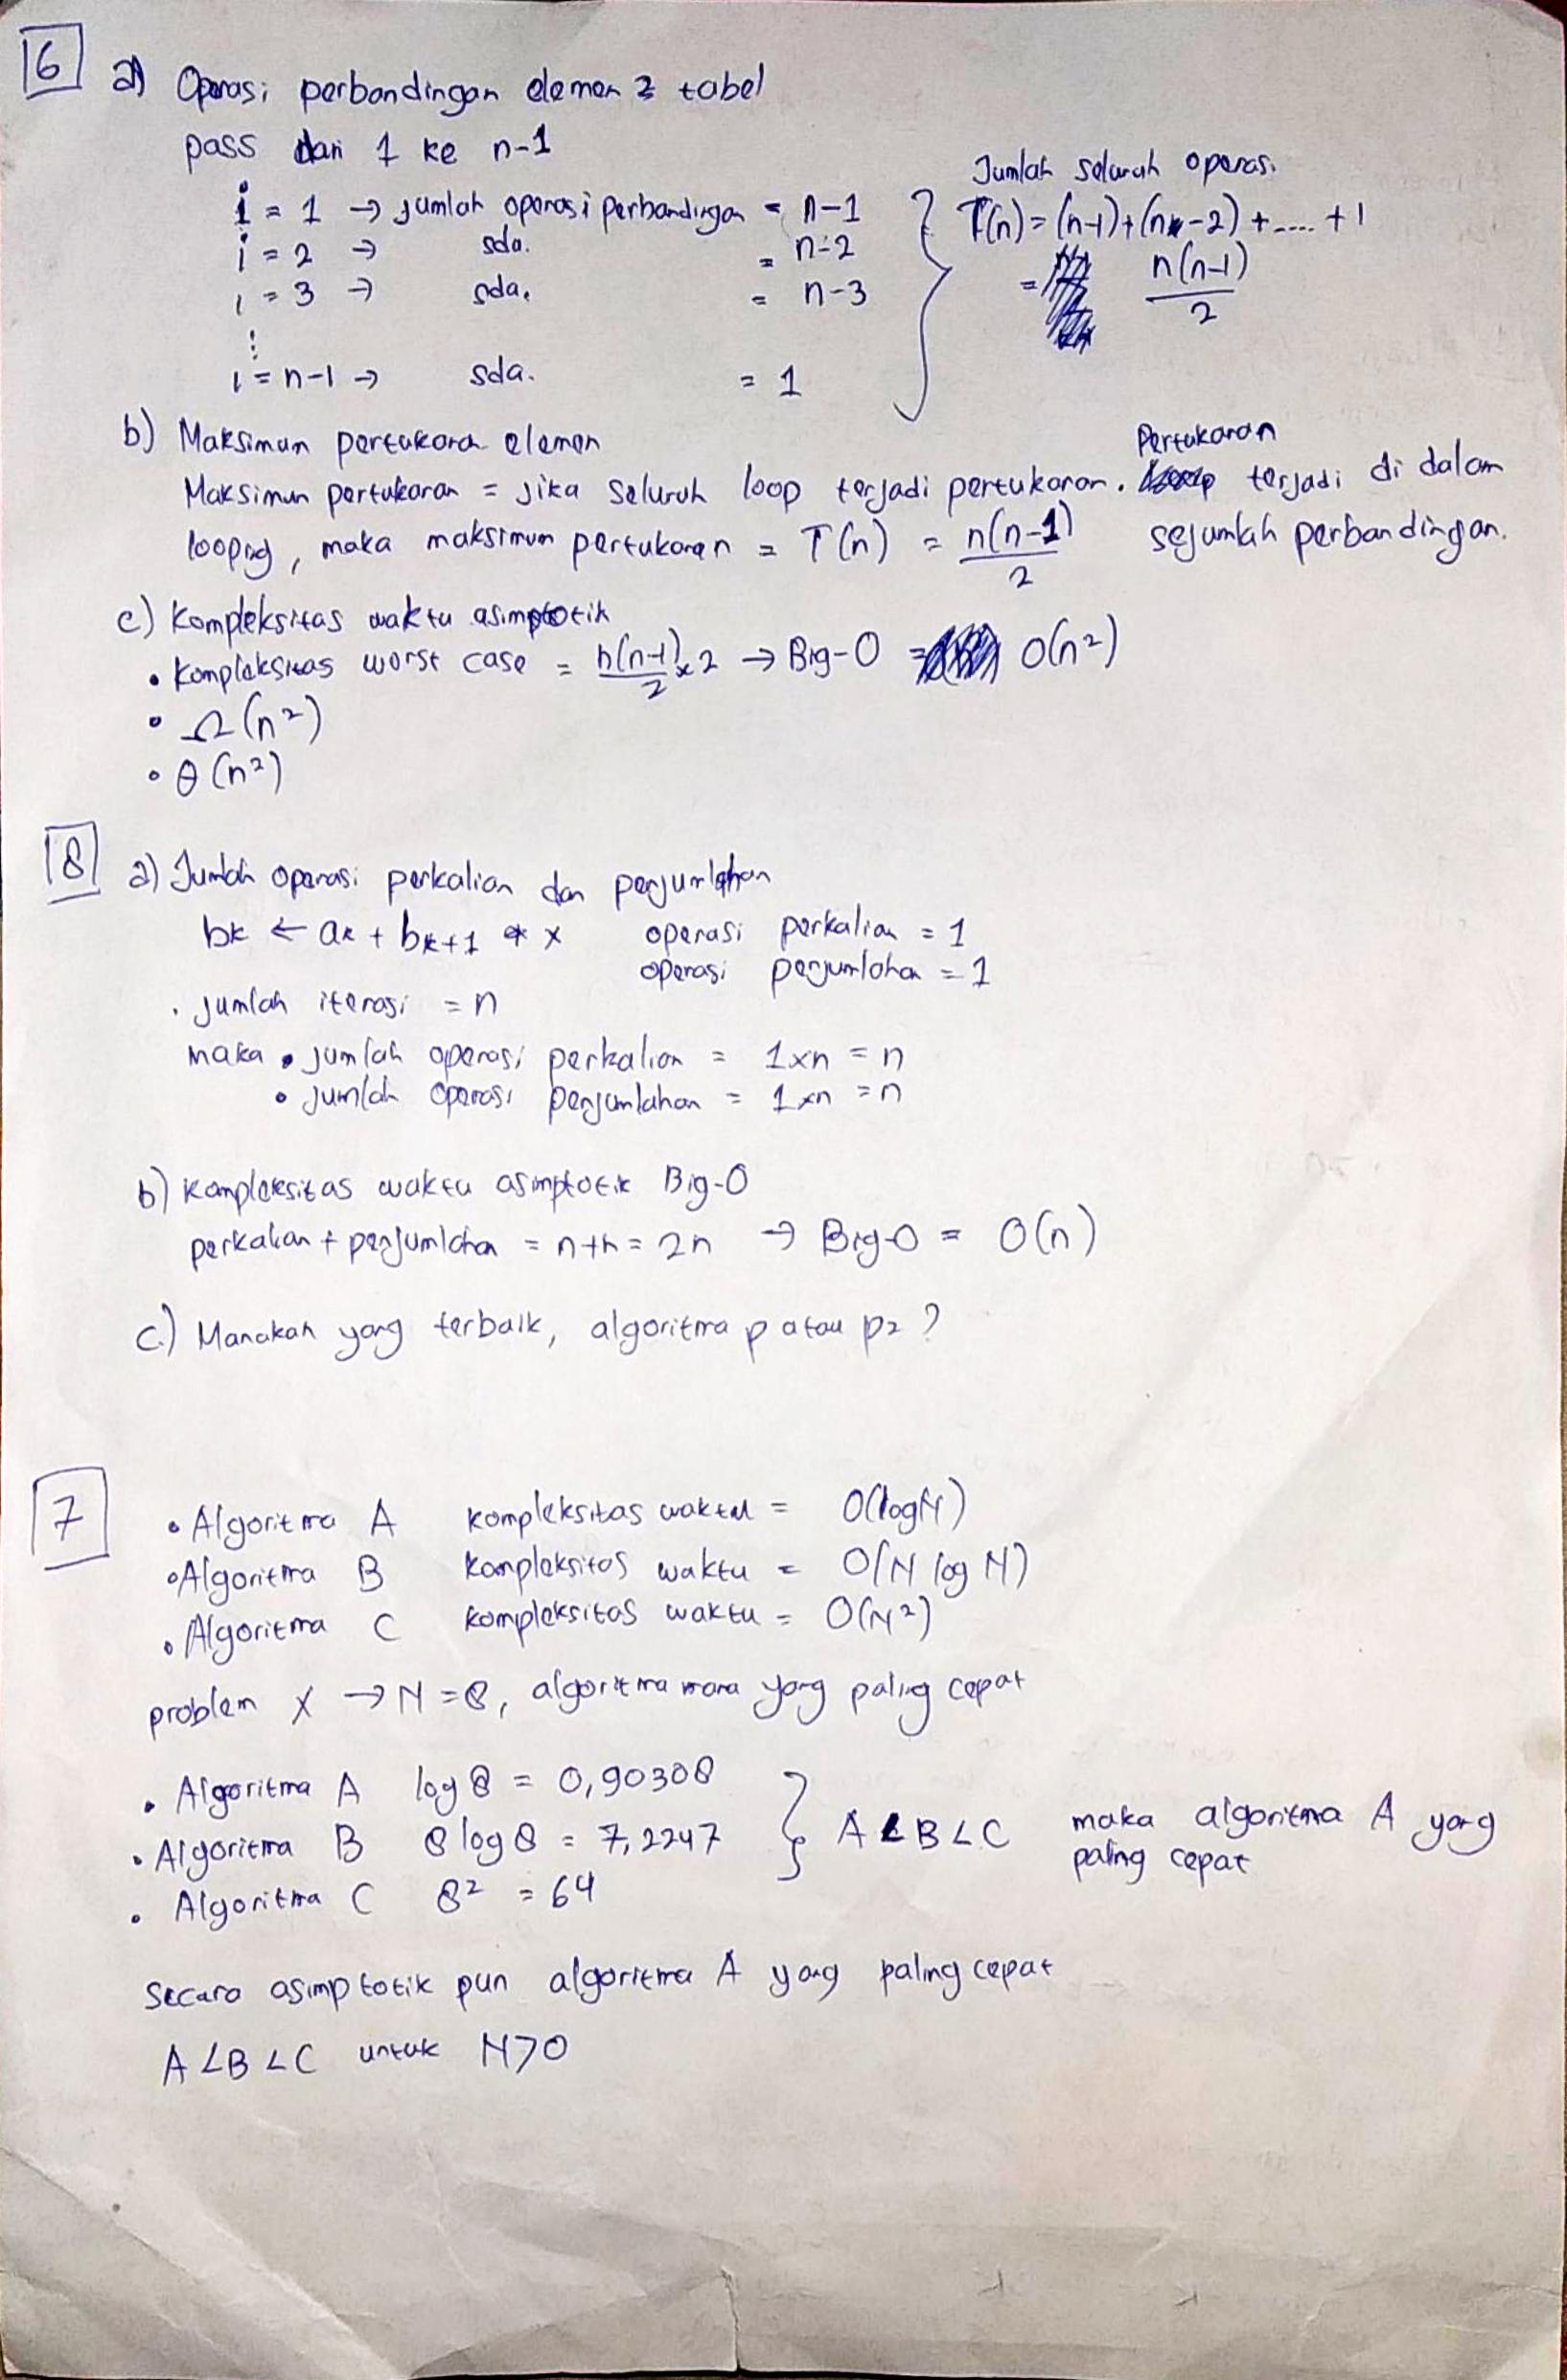 6
a) Operasi perbandingan elemen 2 tabel
pass dari 1 ke n-1
i = 1 → jumlah operasi perbandingan = n-1
i = 2 → sda. = n-2
i = 3 → sda. = n-3
⋮
i = n-1 → sda. = 1
Jumlah seluruh operasi
T(n) = (n-1)+(n-2)+.....+1
= n(n-1)/2
b) Maksimum pertukaran elemen
Maksimum pertukaran = jika seluruh loop terjadi pertukaran. Pertukaran terjadi di dalam
looping, maka maksimum pertukaran = T(n) = n(n-1)/2 sejumlah perbandingan.
c) Kompleksitas waktu asimptotik
• Kompleksitas worst case = n(n-1)/2 x 2 → Big-O = O(n²)
• Ω(n²)
• θ(n²)
8
a) Jumlah operasi perkalian dan penjumlahan
bk ← ak + bk+1 * x operasi perkalian = 1
operasi penjumlahan = 1
. jumlah iterasi = n
maka • jumlah operasi perkalian = 1xn = n
• jumlah operasi penjumlahan = 1xn = n
b) Kompleksitas waktu asimptotik Big-O
perkalian + penjumlahan = n+n = 2n → Big-O = O(n)
c.) Manakah yang terbaik, algoritma p atau p2 ?
7
• Algoritma A kompleksitas waktu = O(log N)
• Algoritma B kompleksitas waktu = O(N log N)
• Algoritma C kompleksitas waktu = O(N²)
problem X → N = 8, algoritma mana yang paling cepat
• Algoritma A log 8 = 0,90308
• Algoritma B 8 log 8 = 7,2247
• Algoritma C 8² = 64
A < B < C maka algoritma A yang
paling cepat
Secara asimptotik pun algoritma A yang paling cepat
A < B < C untuk N > 0